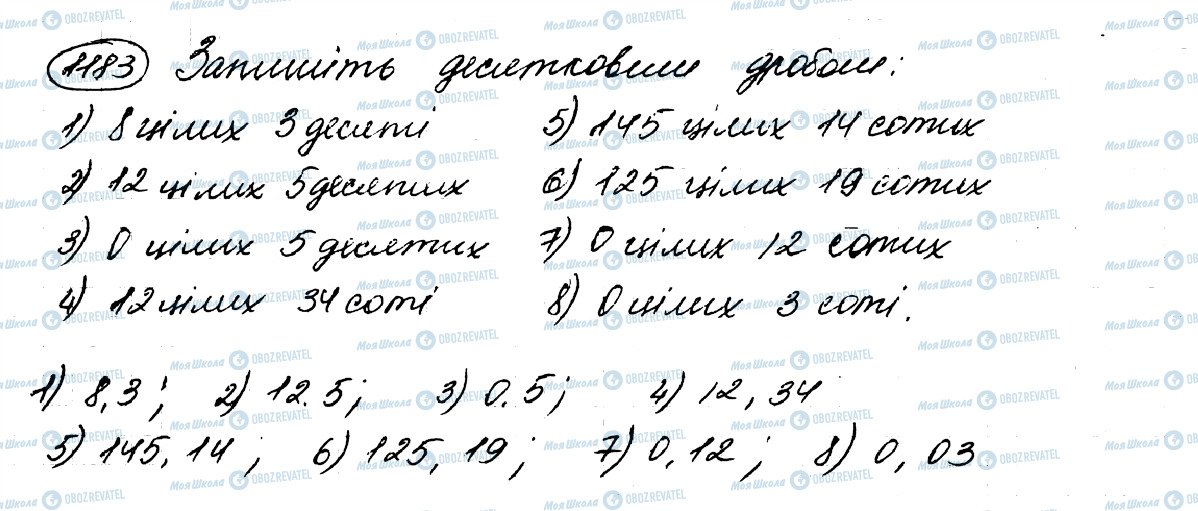 1183 Запишіть десятковим дробом:
1) 8 цілих 3 десяті 5) 145 цілих 14 сотих
2) 12 цілих 5 десятих 6) 125 цілих 19 сотих
3) 0 цілих 5 десятих 7) 0 цілих 12 сотих
4) 12 цілих 34 соті 8) 0 цілих 3 соті.
1) 8,3; 2) 12.5; 3) 0.5; 4) 12,34
5) 145,14; 6) 125,19; 7) 0,12; 8) 0,03